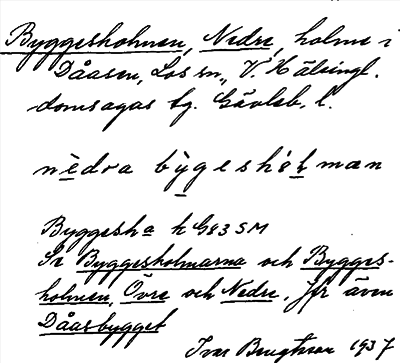 Byggesholmen, Nedre, holme i
Dåasen, Los sn., V. Hälsingl.
domsagas tg. Gävleb. l.
nèdra bỳgesho̱lmæn
Byggesh a k G83SM
Se Byggesholmarna och Bygges-
holmen, Övre och Nedre, Jfr även
Dåasbygget
Ivar Bengtsson 1937